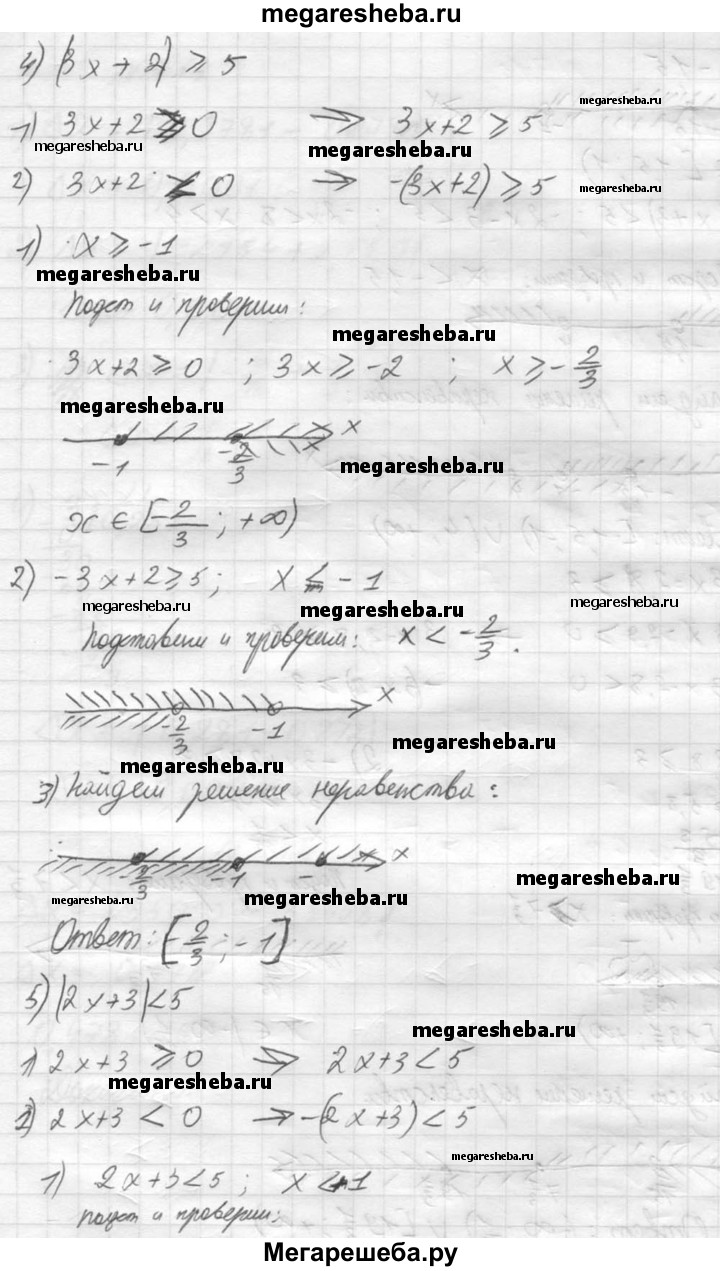 megaresheba.ru
4) |3x+2| ≥ 5
megaresheba.ru
1) 3x+2 ≥ 0 ⇒ 3x+2 ≥ 5
megaresheba.ru megaresheba.ru
2) 3x+2 < 0 → -(3x+2) ≥ 5 megaresheba.ru
1) x ≥ -1
megaresheba.ru
Подст и проверим:
megaresheba.ru
3x+2 ≥ 0 ; 3x ≥ -2 ; x ≥ -2/3
megaresheba.ru
x
-1 -2/3 megaresheba.ru
x ∈ [-2/3 ; +∞)
2) -3x+2 ≥ 5; x ≤ -1
megaresheba.ru megaresheba.ru megaresheba.ru
Подставим и проверим: x < -2/3.
x
-2/3 -1 megaresheba.ru
megaresheba.ru
3) Найдем решение неравенства:
x
2/3 -1 - megaresheba.ru
megaresheba.ru megaresheba.ru
Ответ: [-2/3 ; -1]
5) |2x+3| < 5
megaresheba.ru
1) 2x+3 ≥ 0 ⇒ 2x+3 < 5
megaresheba.ru
2) 2x+3 < 0 → -(2x+3) < 5
megaresheba.ru
1) 2x+3 < 5; x < 1
подст и проверим:
Мегарешеба.ру